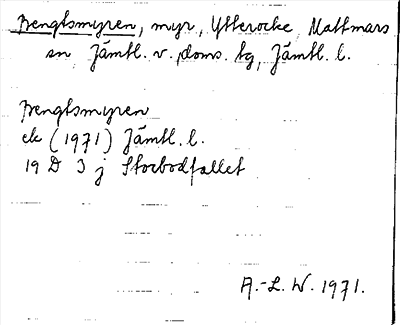 Bengtsmyren, myr, Ytterocke, Mattmars
sn Jämtl. v. doms. tg, Jämtl. l.
Bengtsmyren
ek (1971) Jämtl. l.
19 D 3 j Storbodfallet
A.-L. W. 1971.